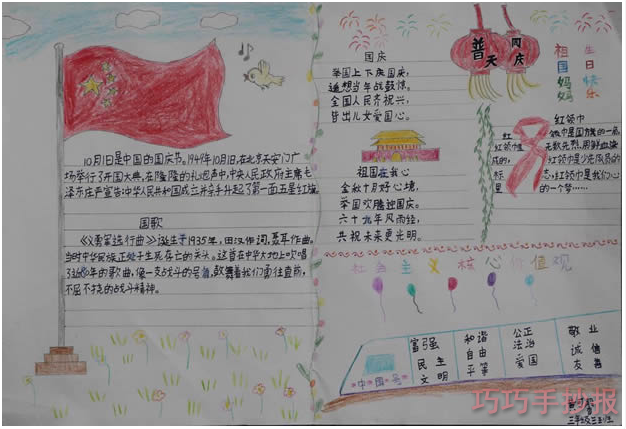 10月1日是中国的国庆节。1949年10月1日,在北京天安门广
场举行了开国大典,在隆隆的礼炮声中,中央人民政府主席毛
泽东庄严宣告:中华人民共和国成立并亲手升起了第一面五星红旗
国歌
《义勇进行曲》诞生于1935年,田汉作词,聂耳作曲。
当时中华民族正处于生死存亡的关头。这首在中华大地上吹唱
年的歌曲,像一支战斗的号角,鼓舞着我们勇往直前,
不屈不挠的战斗精神。
国庆
举国上下庆国庆,
遥想当年战鼓惊。
全国人民齐祝兴,
皆出儿女爱国心。
祖国在我心
金秋十月好心境,
举国欢腾迎国庆。
六十九年风雨轻,
共祝未来更光明。
普天同庆
祖国妈妈
生日快乐
红领巾
红领巾是国旗的一角
是少先队员的
标志,红领巾是我们心
的一个梦……
社会主义核心价值观
富强 民主 文明
和谐 自由 平等
公正 法治 爱国
敬业 诚信 友善
中国号
三年级三班
巧巧手抄报